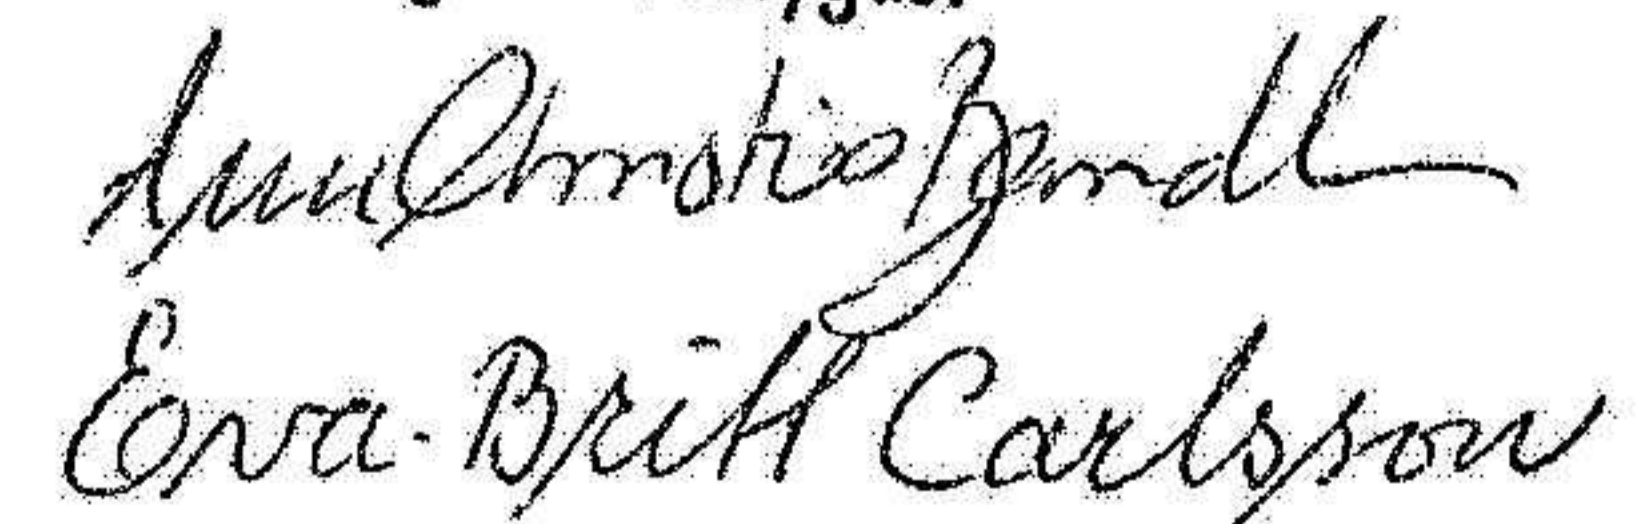 Ann Christin
Eva-Britt Carlsson